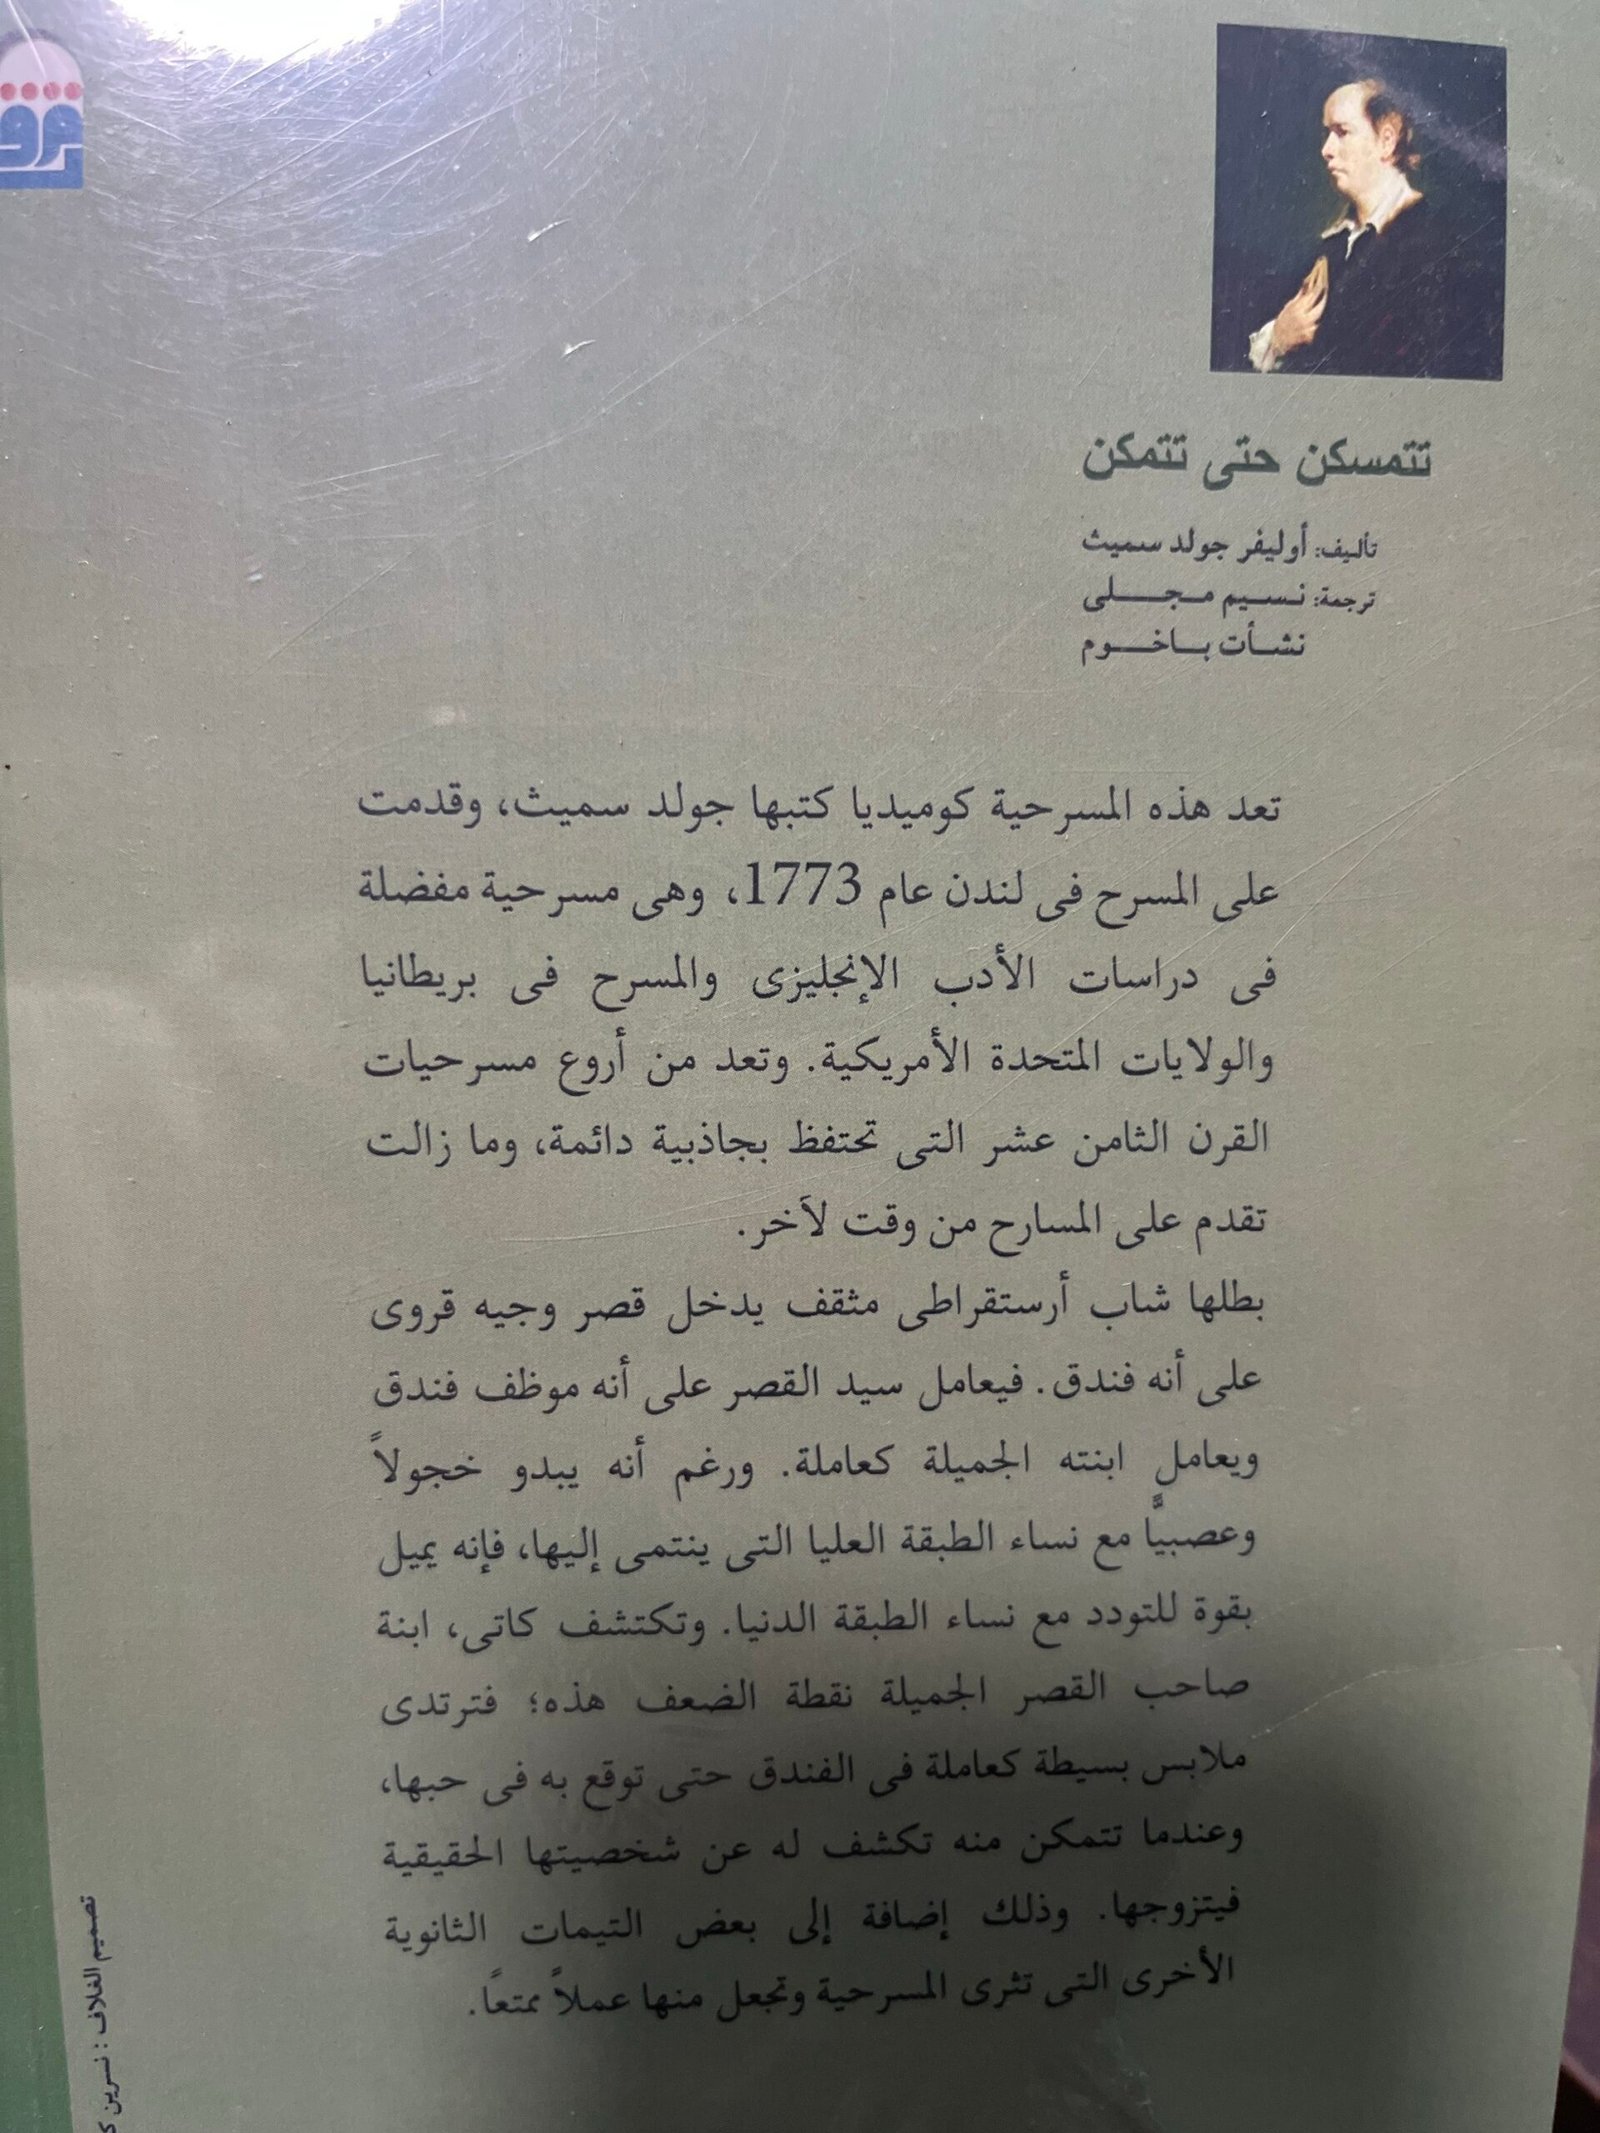 تتمسكن حتى تتمكن
تأليف: أوليفر جولد سميث
ترجمة: نسيم مجلى
نشأت باخوم
تعد هذه المسرحية كوميديا كتبها جولد سميث، وقدمت
على المسرح فى لندن عام 1773، وهى مسرحية مفضلة
فى دراسات الأدب الإنجليزى والمسرح فى بريطانيا
والولايات المتحدة الأمريكية. وتعد من أروع مسرحيات
القرن الثامن عشر التى تحتفظ بجاذبية دائمة، وما زالت
تقدم على المسارح من وقت لآخر.
بطلها شاب أرستقراطى مثقف يدخل قصر وجيه قروى
على أنه فندق. فيعامل سيد القصر على أنه موظف فندق
ويعامل ابنته الجميلة كعاملة. ورغم أنه يبدو خجولاً
وعصبيًّا مع نساء الطبقة العليا التى ينتمى إليها، فإنه يميل
بقوة للتودد مع نساء الطبقة الدنيا. وتكتشف كاتى، ابنة
صاحب القصر الجميلة نقطة الضعف هذه؛ فترتدى
ملابس بسيطة كعاملة فى الفندق حتى توقع به فى حبها،
وعندما تتمكن منه تكشف له عن شخصيتها الحقيقية
فيتزوجها. وذلك إضافة إلى بعض التيمات الثانوية
الأخرى التى تثرى المسرحية وتجعل منها عملاً ممتعًا.
تصميم الغلاف : نسرين